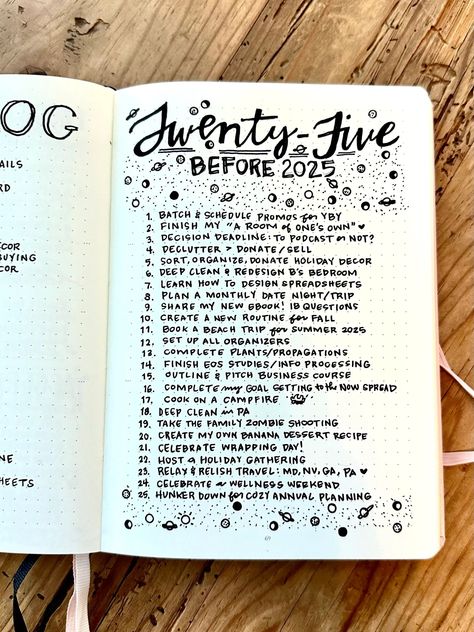 OG
AILS
RD
COR
BUYING
COR
NE
SHEETS
Twenty-Five
BEFORE 2025
1. BATCH & SCHEDULE PROMOS for YBY
2. FINISH MY "A ROOM OF ONE'S OWN" ♥
3. DECISION DEADLINE: TO PODCAST or NOT?
4. DECLUTTER > DONATE / SELL
5. SORT, ORGANIZE, DONATE HOLIDAY DECOR
6. DEEP CLEAN & REDESIGN B'S BEDROOM
7. LEARN HOW TO DESIGN SPREADSHEETS
8. PLAN A MONTHLY DATE NIGHT/TRIP
9. SHARE MY NEW EBOOK! 18 QUESTIONS
10. CREATE A NEW ROUTINE for FALL
11. BOOK A BEACH TRIP for SUMMER 2025
12. SET UP ALL ORGANIZERS
13. COMPLETE PLANTS/PROPAGATIONS
14. FINISH EOS STUDIES/INFO PROCESSING
15. OUTLINE & PITCH BUSINESS COURSE
16. COMPLETE my GOAL GETTING to the NOW SPREAD
17. COOK ON A CAMPFIRE
18. DEEP CLEAN in PA
19. TAKE THE FAMILY ZOMBIE SHOOTING
20. CREATE MY OWN BANANA DESSERT RECIPE
21. CELEBRATE WRAPPING DAY!
22. HOST a HOLIDAY GATHERING
23. RELAX & RELISH TRAVEL: MD, NV, GA, PA ♥
24. CELEBRATE a WELLNESS WEEKEND
25. HUNKER DOWN for COZY ANNUAL PLANNING